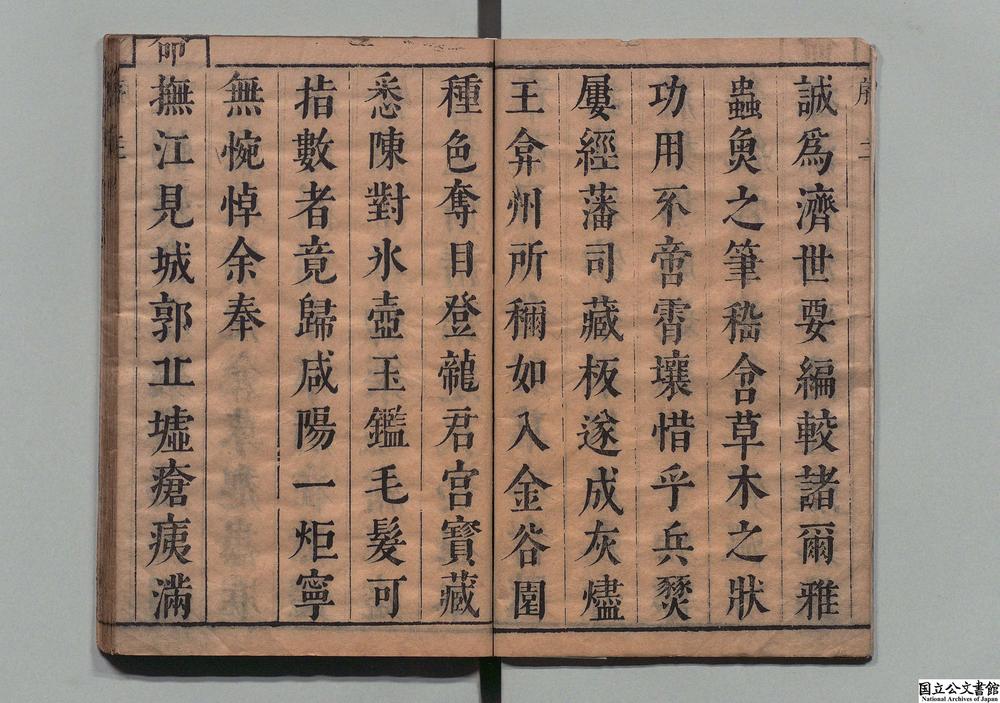 誠爲濟世要編較諸爾雅
蟲魚之筆嵇含草木之狀
功用不啻霄壤惜乎兵燹
屢經藩司藏板遂成灰燼
王弇州所稱如入金谷園
種色奪目登龍君宮寶藏
悉陳對氷壺玉鑑毛髮可
指數者竟歸咸陽一炬寧
無惋悼余奉
命
撫江見城郭丘墟瘡痍滿
序
國立公文書館
National Archives of Japan